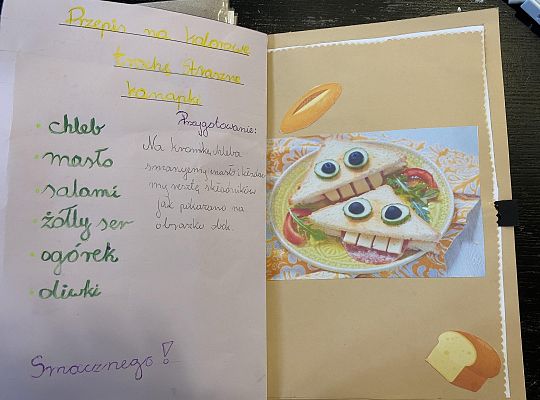 Przepis na kolorowe
trochę straszne
kanapki
chleb
masło
salami
żółty ser
ogórek
oliwki
Przygotowanie:
Na kromkę chleba
smarujemy masło i kładzie
my resztę składników
jak pokazano na
obrazku obok.
Smacznego!